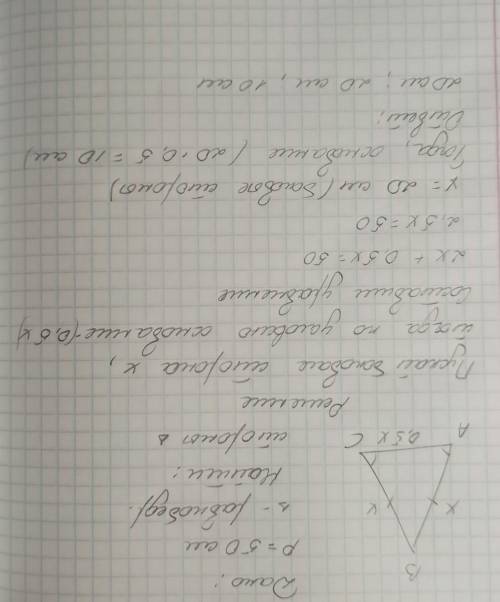 Дано:
P = 50 см
Δ - равнобедр.
Найти:
стороны Δ
B
x
x
A
0,5x
C
Решение
Пускай боковая сторона x,
тогда по условию основание - (0,5x)
Составим уравнение
2x + 0,5x = 50
2,5x = 50
x = 20 см (боковые стороны)
Тогда, основание (20 · 0,5 = 10 см)
Ответ:
20 см; 20 см, 10 см